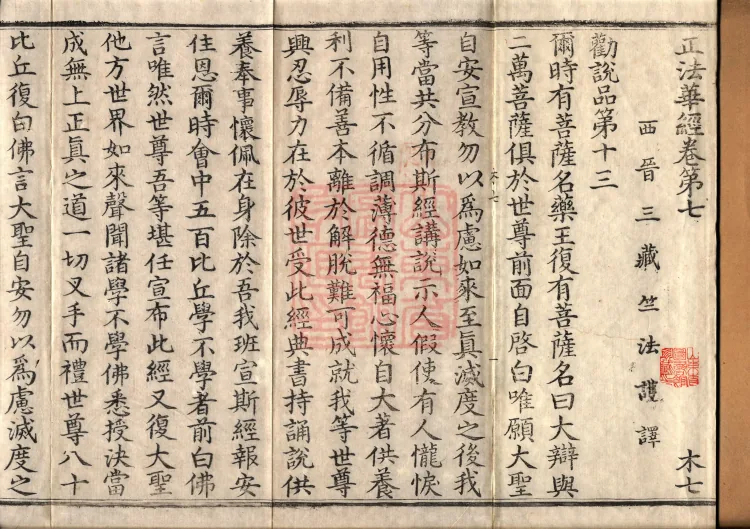 正法華經卷第七
西晉三藏竺法護譯 木七
勸說品第十三
爾時有菩薩名藥王復有菩薩名曰大辯與
二萬菩薩俱於世尊前面自啓白唯願大聖
自安宣教勿以爲慮如來至眞滅度之後我
等當共分布斯經講說示人假使有人儱悷
自用性不循調薄德無福心懷自大著供養
利不備善本離於解脫難可成就我等世尊
興忍辱力在於彼世受此經典書持誦說供
養奉事懷佩在身除於吾我班宣斯經報安
住恩爾時會中五百比丘學不學者前白佛
言唯然世尊吾等堪任宣布此經又復大聖
他方世界如來聲聞諸學不學佛悉授決當
成無上正眞之道一切叉手而禮世尊八十
比丘復白佛言大聖自安勿以爲慮滅度之